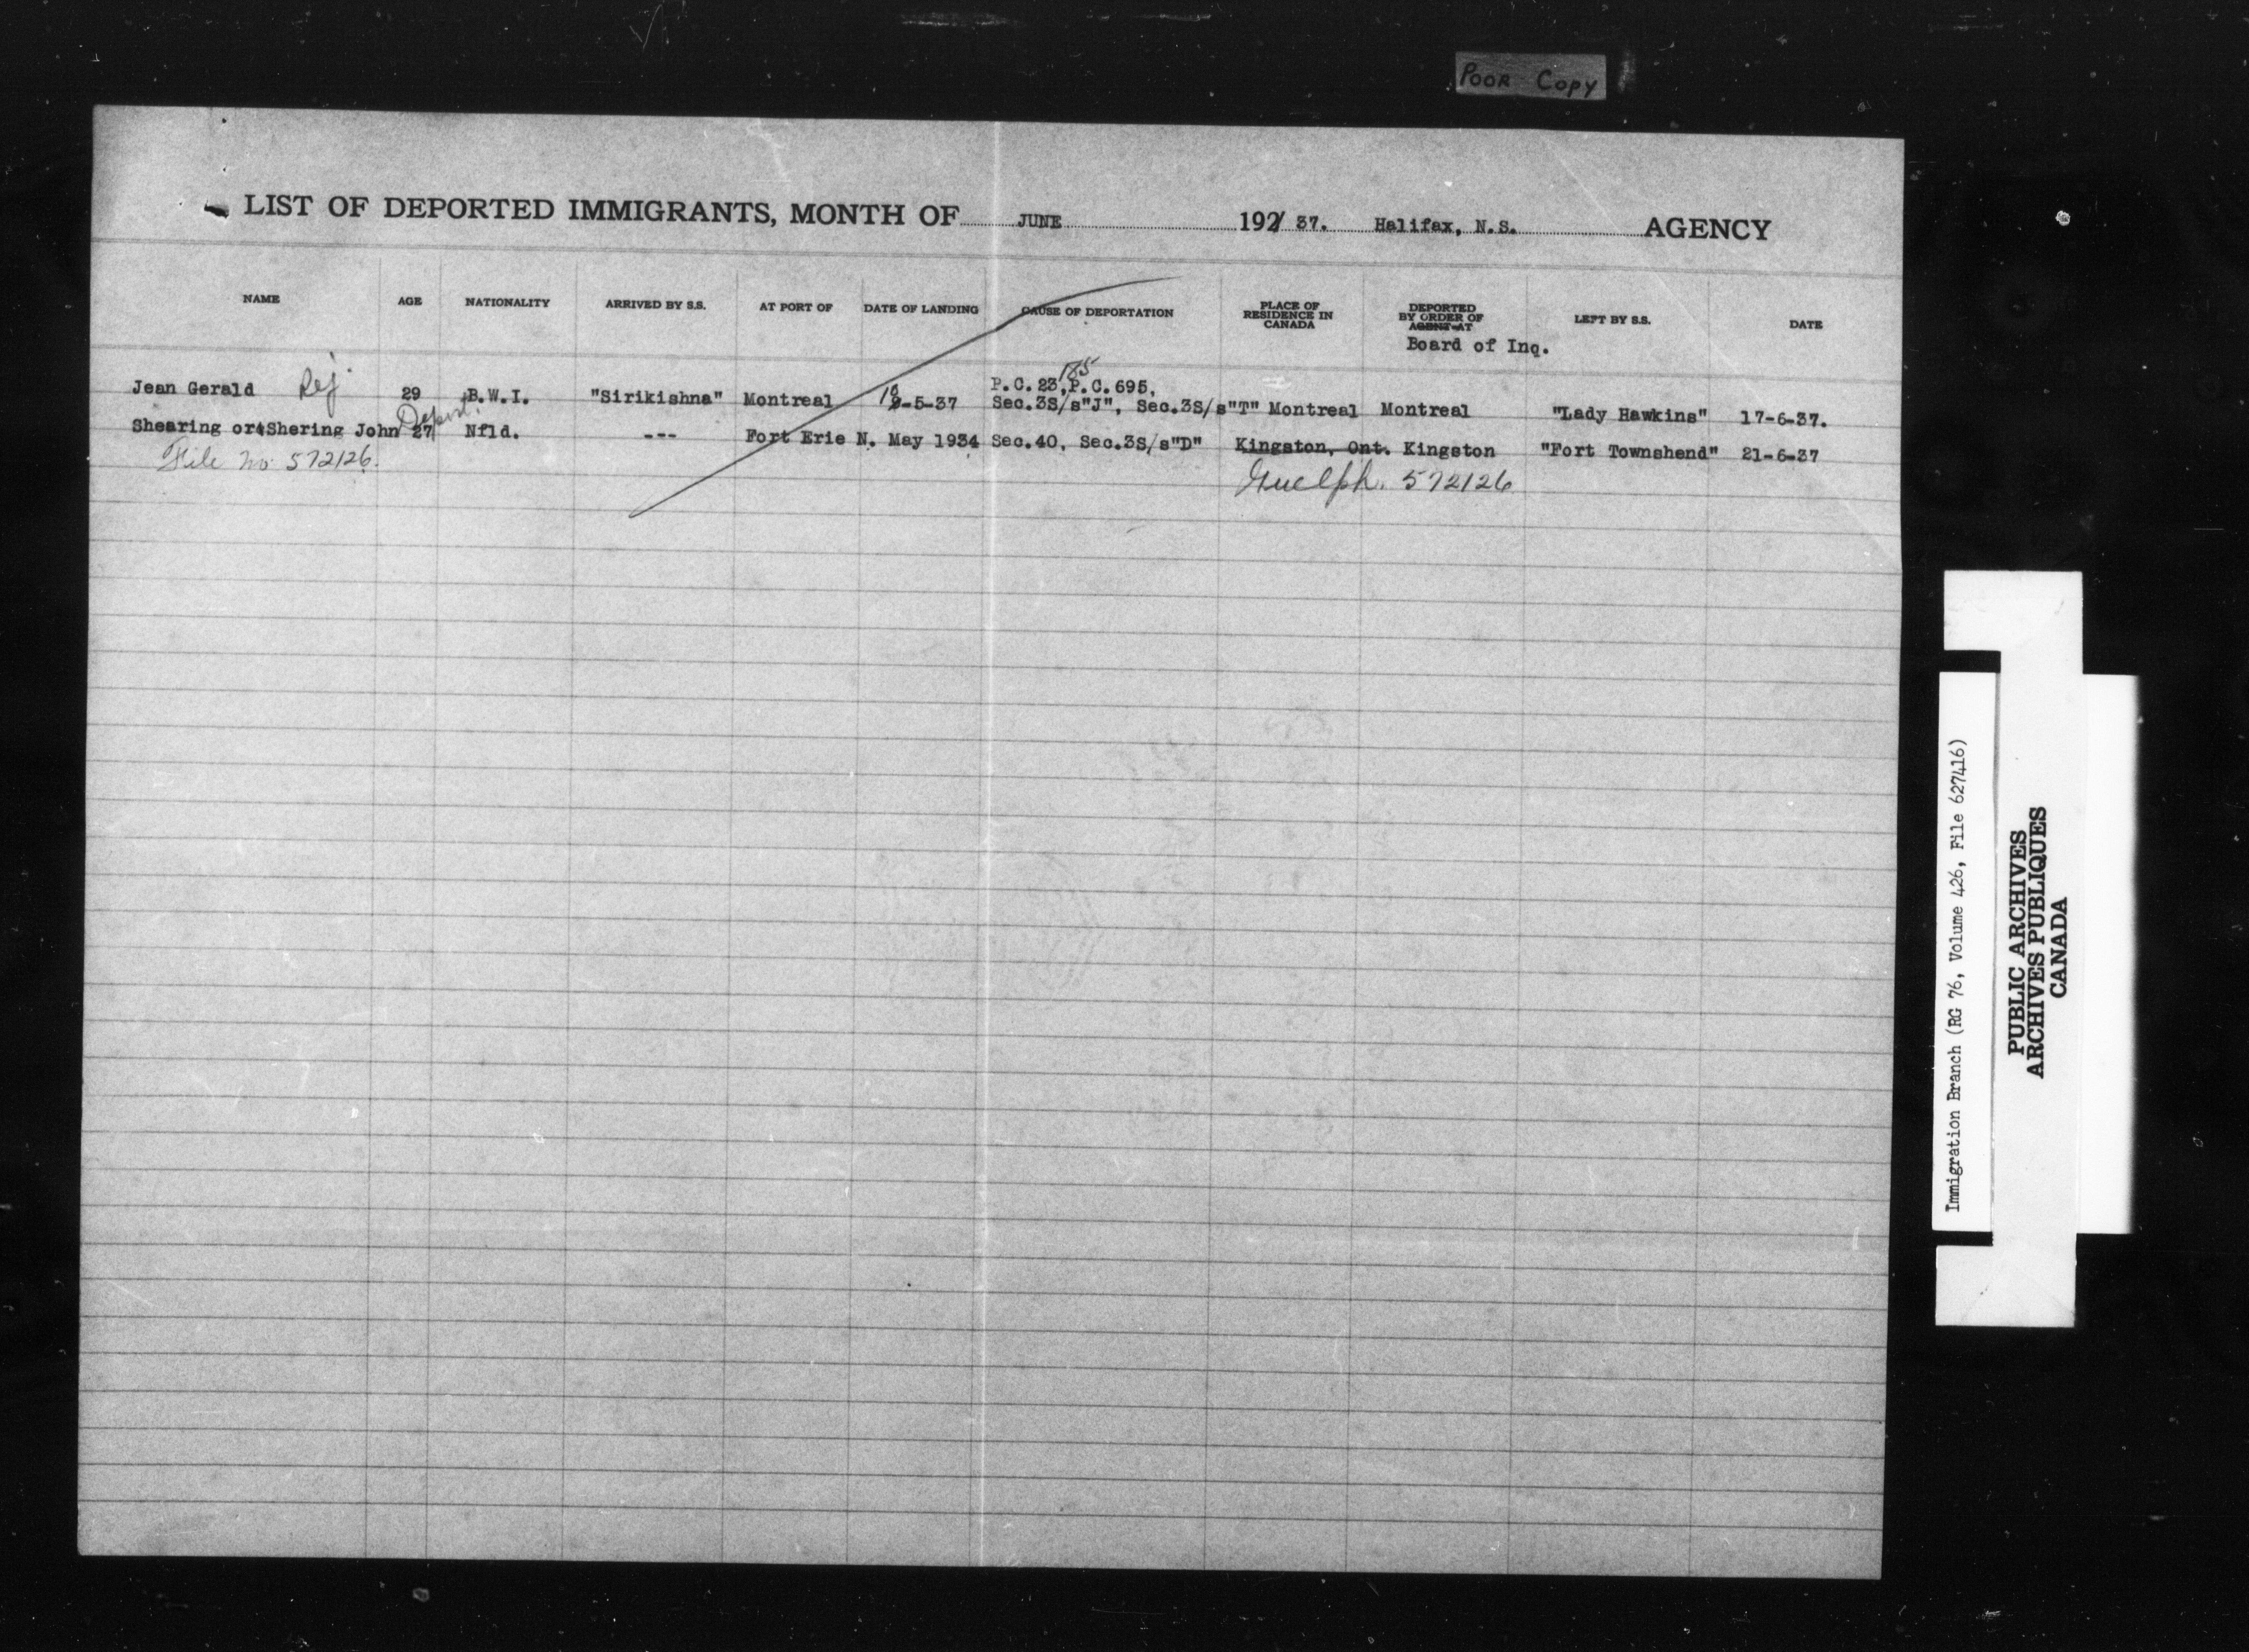 POOR COPY
LIST OF DEPORTED IMMIGRANTS, MONTH OF JUNE 192/ 37. Halifax, N.S. AGENCY
NAME AGE NATIONALITY ARRIVED BY S.S. AT PORT OF DATE OF LANDING CAUSE OF DEPORTATION PLACE OF RESIDENCE IN CANADA DEPORTED BY ORDER OF AGENT AT LEFT BY S.S. DATE
Board of Inq.
185
P.C.23, P.C.695,
Jean Gerald Rej. 29 B.W.I. "Sirikishna" Montreal -5-37 Sec.3S/s"J", Sec.3S/s"T" Montreal Montreal "Lady Hawkins" 17-6-37.
Deport.
Shearing or Shering John 27 Nfld. --- Fort Erie N. May 1934 Sec.40, Sec.3S/s"D" Kingston, Ont. Kingston "Fort Townshend" 21-6-37
File no. 572126. Guelph. 572126
Immigration Branch (RG 76, Volume 426, File 627416)
PUBLIC ARCHIVES
ARCHIVES PUBLIQUES
CANADA